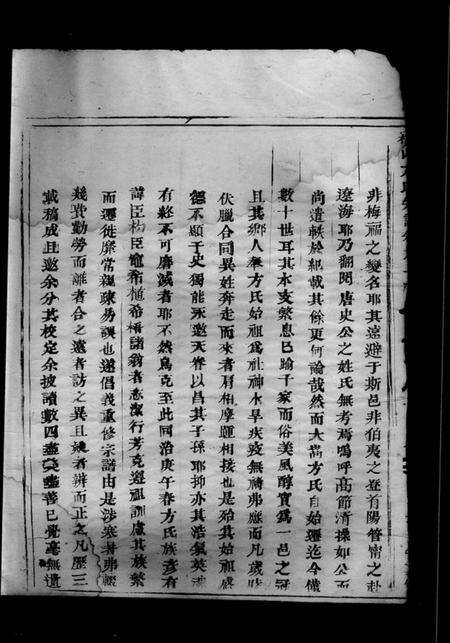 非梅福之變名耶其遠避于斯邑非伯夷之登首陽管甯之赴
遼海耶乃翻閱唐史公之姓氏無考焉嗚呼高節清操如公而
尚遺軼於紀載其餘更何論哉然而大嵩方氏自始遷迄今僅
數十世耳其水支繁息已踰千家而俗美風醇實爲一邑之冠
且其鄉人奉方氏始祖爲社神水旱疾疫無禱弗應而凡歲時
伏臘合同異姓奔走而來者肩相摩踵相接也是殆其始祖盛
德不顯于史獨能永邀天眷以昌其子孫耶抑亦其浩氣英
有終不可磨滅者耶不然爲克至此同治庚午春方氏族彥有
諱臣杨臣寵希植希梧諸翁者志潔行芳克遵祖訓慮其族繁
而遷徙靡常親疎易誤也遂倡義重修宗譜由是涉寒暑弗輟
幾費勤勞而離者合之遠者訪之異且嫌者辨而正之凡歷三
載稿成且邀余分其校定余披讀數四盡美盡善已覺毫無遺